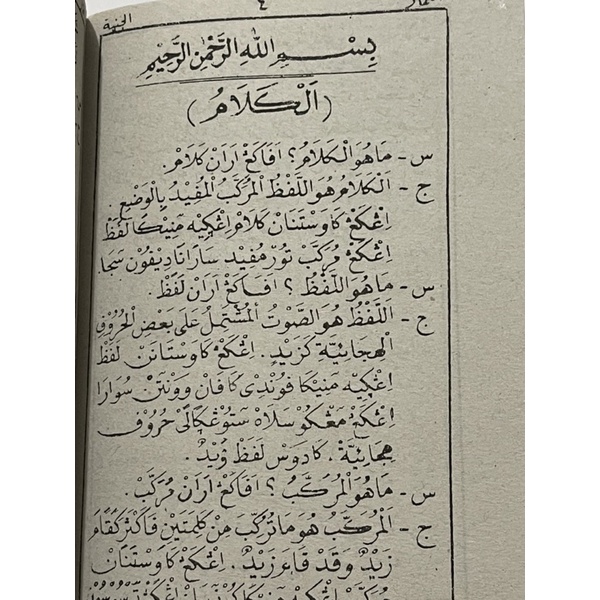 ٤
بِسْمِ اللهِ الرَّحْمٰنِ الرَّحِيْمِ
(اَلْكَلَامُ)
س - مَا هُوَ الْكَلَامُ؟ اَفَاكَڠْ اَرَانْ كَلَامْ.
ج - اَلْكَلَامُ هُوَ اللَّفْظُ الْمُرَكَّبُ الْمُفِيْدُ بِالْوَضْعِ.
اِڠْكَڠْ كَاوَسْتَنَانْ كَلَامْ اِڠْكِيَه مَنِيْكَا لَفَظْ
اِڠْكَڠْ مُرَكَّبْ تُوْرْ مُفِيْد سَارَانَا دِيْفُوْنْ سَجَا.
س - مَا هُوَ اللَّفْظُ؟ اَفَاكَڠْ اَرَانْ لَفَظْ.
ج - اَللَّفْظُ هُوَ الصَّوْتُ الْمُشْتَمِلُ عَلَى بَعْضِ الْحُرُوْفِ
الْهِجَائِيَّةِ كَزَيْدٍ. اِڠْكَڠْ كَاوَسْتَانَنْ لَفَظْ
اِڠْكِيَه مَنِيْكَا فُوْنْدِى كَافَانْ وَوَنْتَنْ سُوَارَا
اِڠْكَڠْ مَڠْكُوْ سَلَاهْ سَتُوْڠْكَالَىْ حُرُوْف
هِجَائِيَّةْ. كَادَوْس لَفَظْ زَيْدٌ.
س - مَا هُوَ الْمُرَكَّبُ؟ اَفَاكَڠْ اَرَانْ مُرَكَّبْ.
ج - اَلْمُرَكَّبُ هُوَ مَا تُرُكِّبَ مِنْ كَلِمَتَيْنِ فَاَكْثَرَ كَقَامَ
زَيْدٌ وَقَدْ قَامَ زَيْدٌ. اِڠْكَڠْ كَاوَسْتَنَانْ